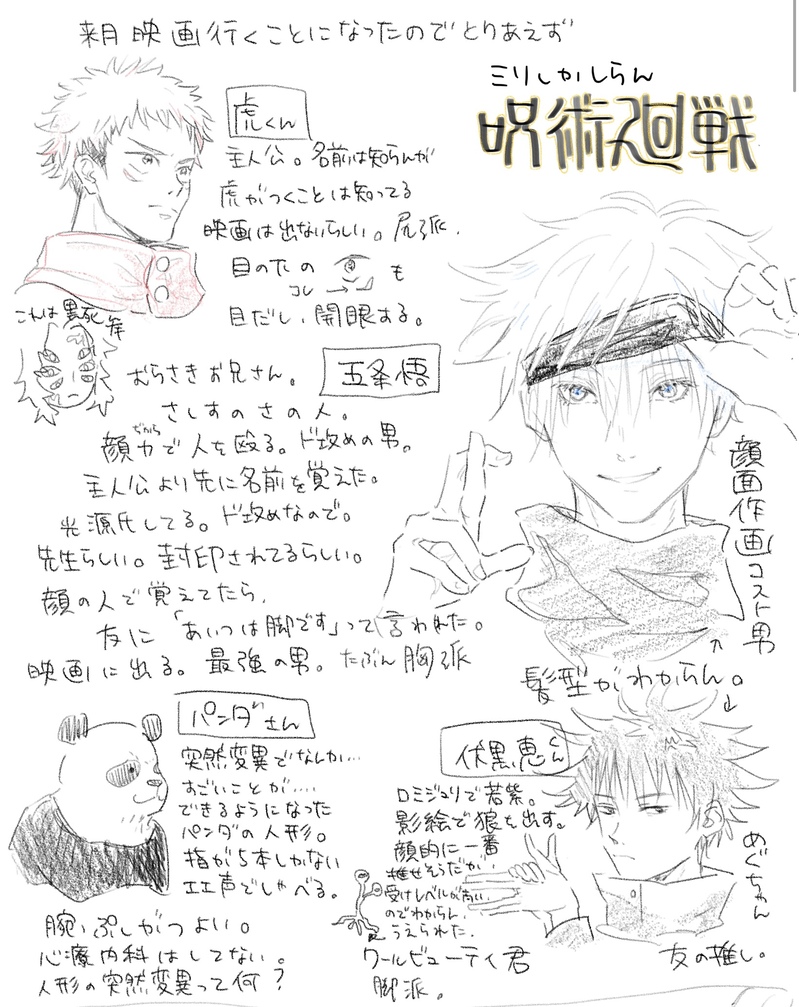 来月映画行くことになったのでとりあえず
ミリしかしらん
呪術廻戦
虎くん
主人公。名前は知らんが
虎がつくことは知ってる
映画は出ないらしい。尻派.
目の下の も
コレ
目だし、開眼する。
これは黒死牟
むらさきお兄さん。
五条悟
さしすのさの人。
顔力で人を殴る。ド攻めの男。
ぢから
主人公より先に名前を覚えた。
光源氏してる。ド攻めなので。
先生らしい。封印されてるらしい。
顔の人で覚えてたら、
友に「あいつは脚です」って言われた。
映画に出る。最強の男。たぶん胸派
顔面作画コスト男
髪型がわからん。
パンダさん
突然変異でなしか…
すごいことが….
できるようになった
パンダの人形。
指が5本しかない
エエ声でしゃべる。
腕っぷしがつよい。
心療内科はしてない。
人形の突然変異って何?
伏黒恵くん
ロミジュリで若紫。
影絵で狼を出す。
顔的に一番
推せそうだが、
受けレベルが高い
のでわからん。
うえられた.
クールビューティ君
脚派。
めぐちゃん
友の推し。